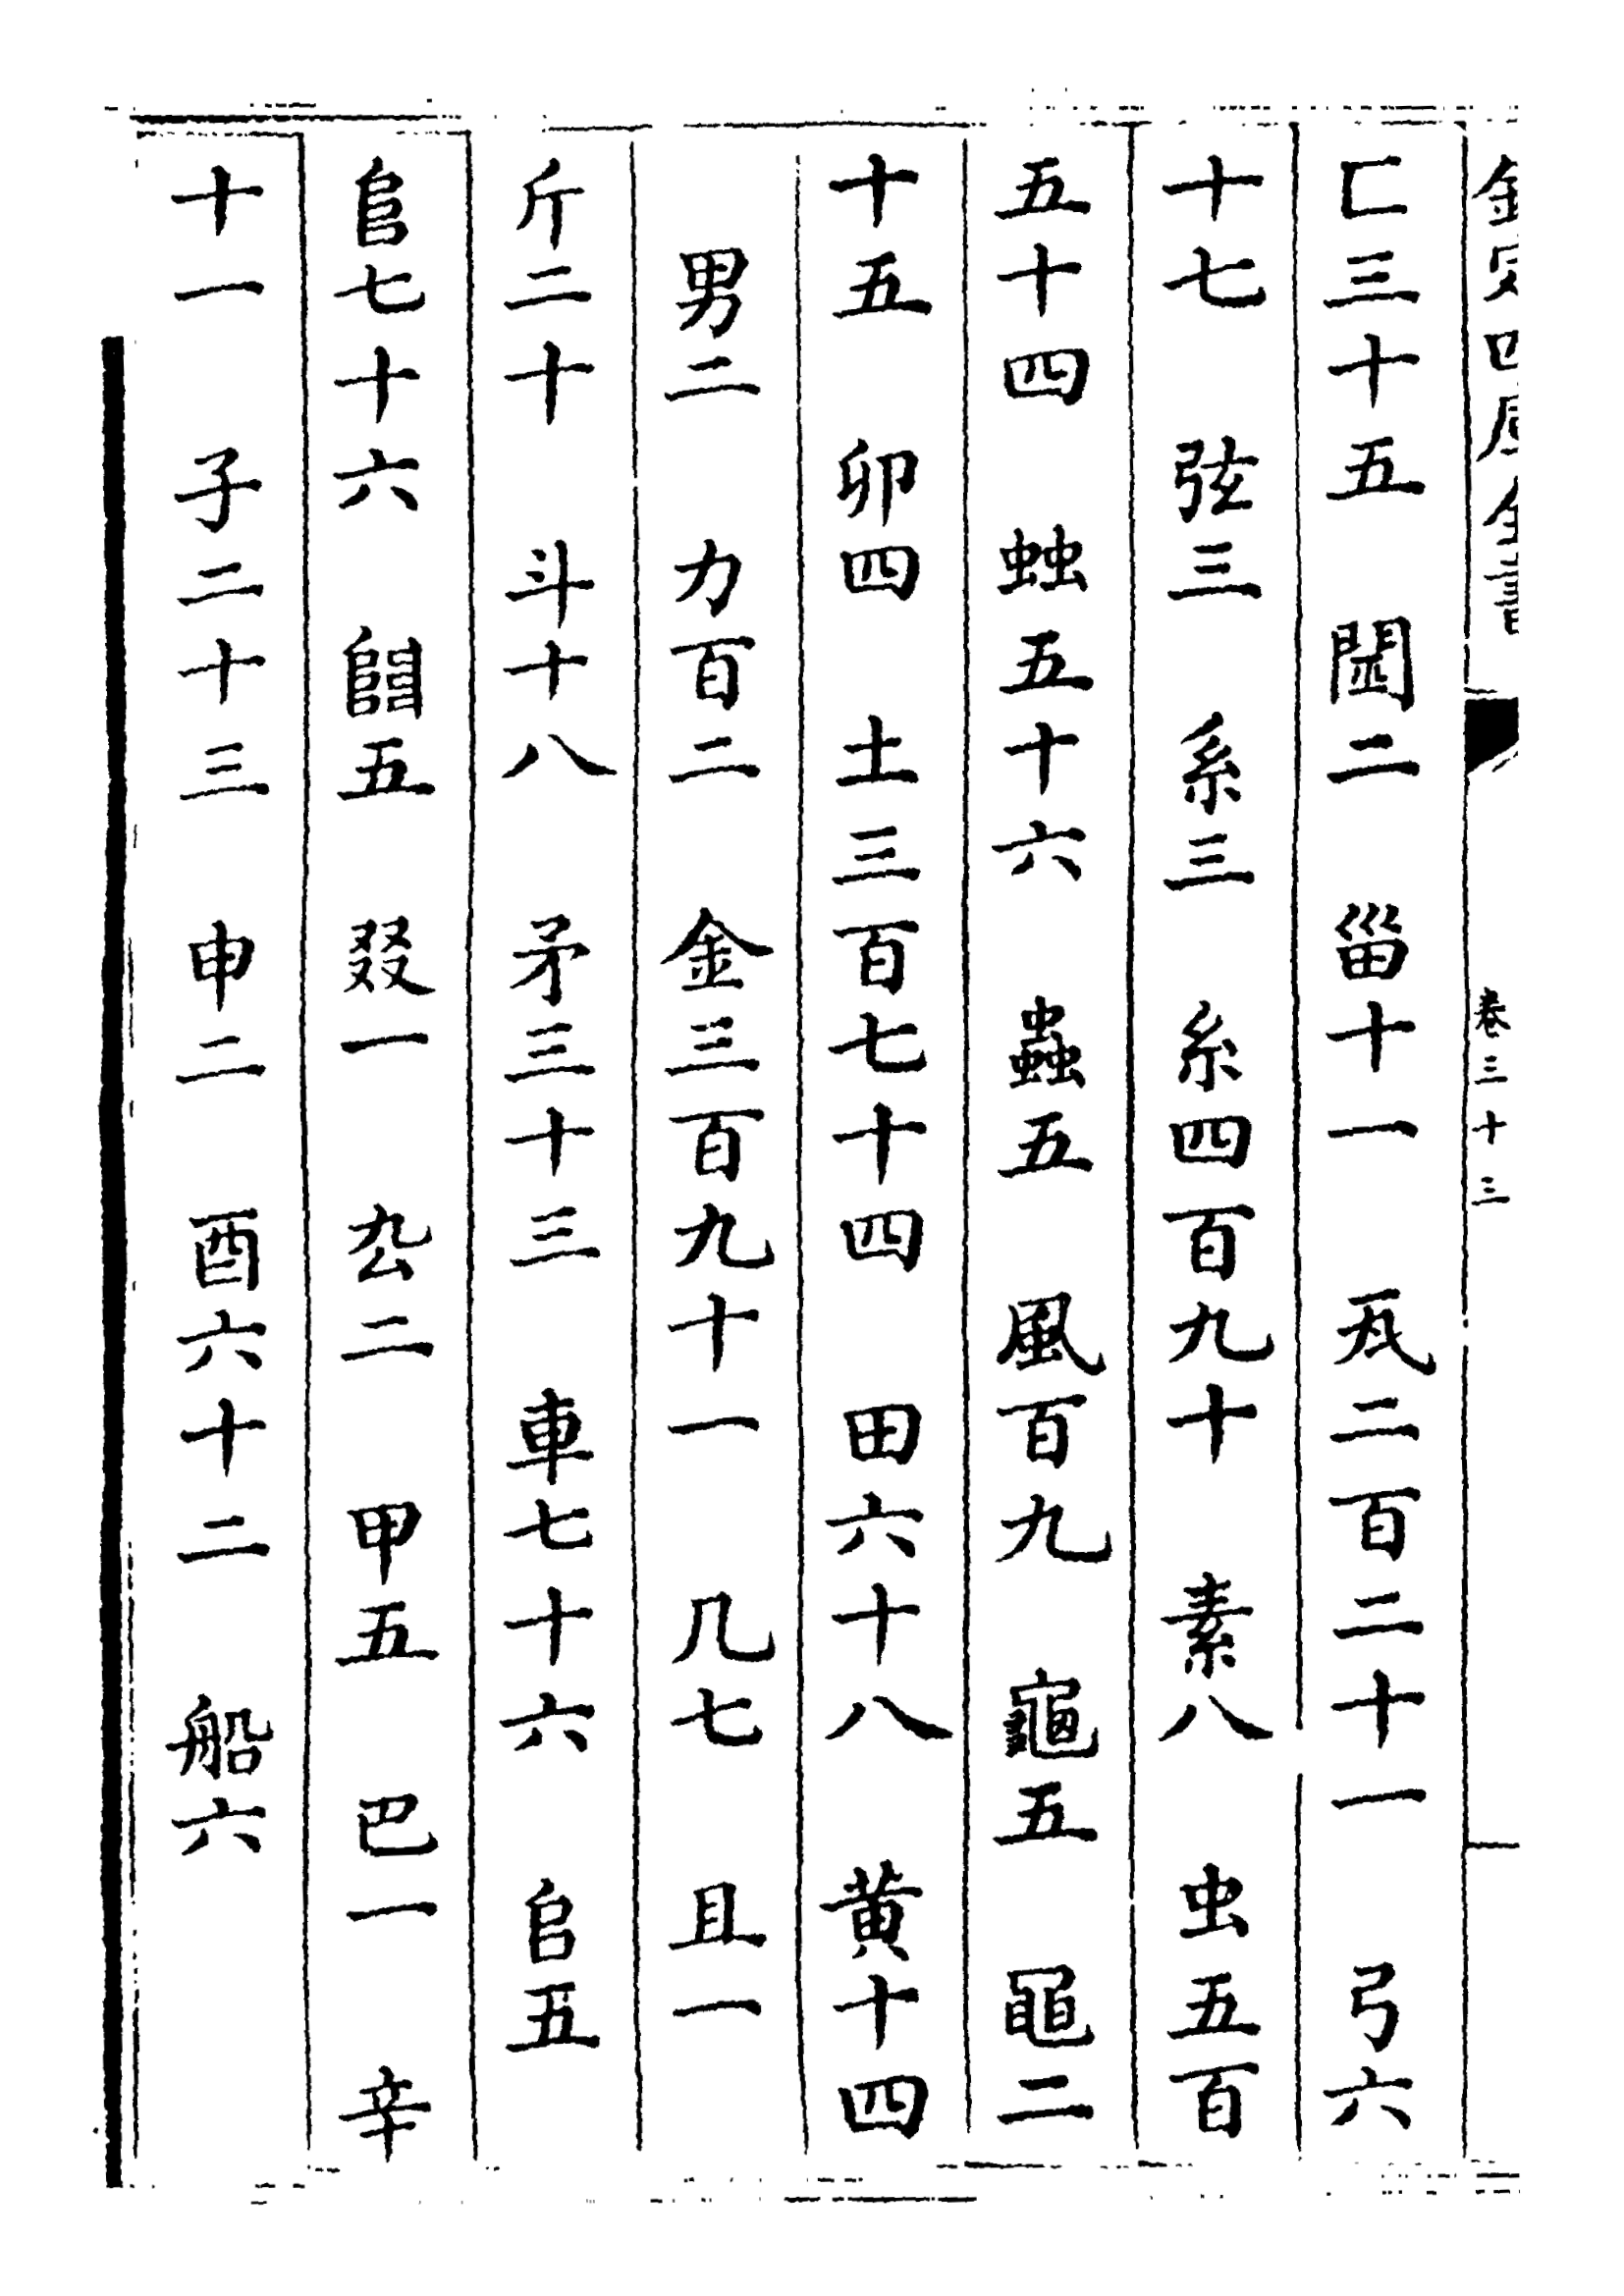 欽定四庫全書 卷三十三
匚三十五 閟二 甾十一 瓦二百二十一 弓六
十七 弦三 系三 糸四百九十 素八 虫五百
五十四 䖵五十六 蟲五 風百九 龜五 黽二
十五 卯四 土三百七十四 田六十八 黄十四
男二 力百二 金三百九十一 几七 且一
斤二十 斗十八 矛三十三 車七十六 𠂤五
𨸏七十六 𨺅五 叕一 厹二 甲五 巴一 辛
十一 子二十三 申二 酉六十二 船六